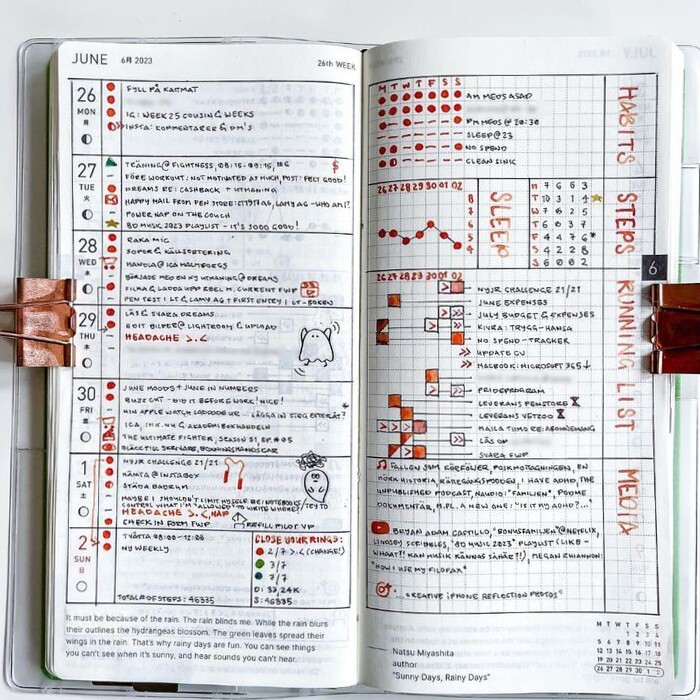 JUNE 6月 2023 26th WEEK
26 MON 月
FYLL PÅ KATMAT
IG: WEEK 25 COUSING WEEKS
INSTA: KOMMENTARER & DM'S
27 TUE 火
TRÄNING@FIGHTNESS, 08:15-09:15,
FÖRE WORKOUT: NOT MOTIVATED AT MUCH, POST: FELT GOOD!
DREAMS RE: CASHBACK + UTMANING
HAPPY MAIL FROM PEN STORE: LAMY AG - WHO AM I?
POWER NAP ON THE COUCH
BO MUSIC 2023 PLAYLIST - IT'S SOOO GOOD!
28 WED 水
RAKA MIG
SOPOR & KÄLLSORTERING
HANDLA@ICA MALMBORGS
BÖRJADE MED NY UTMANING@DREAMS
FILMA & LADDA UPP REEL M. CURRENT FWP
PEN TEST 1 LT & LAMY AG + FIRST ENTRY 1 LT-BOKEN
29 THU 木
LÄS & SVARA DREAMS
EDIT BILDER@LIGHTROOM & UPLOAD
HEADACHE >.<
30 FRI 金
JUNE MOODS + JUNE IN NUMBERS
BUZZ CUT - DID IT BEFORE WORK! NICE!
MIN APPLE WATCH
ICA, & AKADEMIBOKHANDELN
THE ULTIMATE FIGHTER, SEASON 31, EP.#05
1 SAT 土
NYJR CHALLENGE 21/21
HÄMTA@INSTABOX
STÄDA BADRUM
MAYBE I SHOULDN'T LIMIT MYSELF RE: NOTEBOOKS/TRY TO
CONTROL WHAT I'M "ALLOWED" TO WRITE WHERE?
HEADACHE >.<, NAP
CHECK IN FORM FWP REFILL PILOT VP
2 SUN 日
TVÄTTA 08:00-12:00
NY WEEKLY
TOTAL # OF STEPS: 46335
CLOSE YOUR RINGS:
2/7 >.< (CHANGE!)
3/7
7/7
S: 46335
It must be because of the rain. The rain blinds me. While the rain blurs
their outlines the hydrangeas blossom. The green leaves spread their
wings in the rain. That's why rainy days are fun. You can see things
you can't see when it's sunny, and hear sounds you can't hear.
M T W T F S S
HABITS
AM MEDS ASAP
PM MEDS@20:30
SLEEP@23
NO SPEND
CLEAN SINK
26 27 28 29 30 01 02
8
7
6
5
4
SLEEP
STEPS
M 7 6 6 3
T 10 3 1 4
W 7 6 2 5
T 6 0 3 7
F 4 4 7 6
S 4 2 2 8
S 6 0 0 2
6
26 27 28 29 30 01 02
RUNNING LIST
NYJR CHALLENGE 21/21
JUNE EXPENSES
JULY BUDGET & EXPENSES
KIVRA: TRYGG-HANSA
NO SPEND-TRACKER
UPDATE CV
MACBOOK: MICROSOFT 365
PRIDEPROGRAM
LEVERANS PENSTORE
LEVERANS VETZOO
MAILA TIIMO RE: ABONNEMANG
LÄS OP
SVARA FWP
MEDIA
FALLEN SOM FÖRFÖLJER POLISMOTTAGNINGEN, EN
MÖRK HISTORIA, RÄTTEGÅNGSPODDEN, I HAVE ADHD, THE
UNPUBLISHED PODCAST, "FAMILJEN", P3
DOKUMENTÄR, M.FL. A NEW ONE: "IS IT MY ADHD?..."
BRYAN ADAM CASTILLO, "BONUSFAMILJEN"@NETFLIX,
LINDSEY SCRIBBLES, "BO MUSIC 2023" PLAYLIST (LIKE -
WHAT?! KAN MUSIK KÄNNAS SÅHÄR?!), MEGAN RHIANNON:
"HOW I USE MY FILOFAX"
"... CREATIVE IPHONE REFLECTION PHOTOS"
Natsu Miyashita
author
"Sunny Days, Rainy Days"
M T W T F S S
1 2 3 4
5 6 7 8 9 10 11
12 13 14 15 16 17 18
19 20 21 22 23 24 25
26 27 28 29 30 1 2